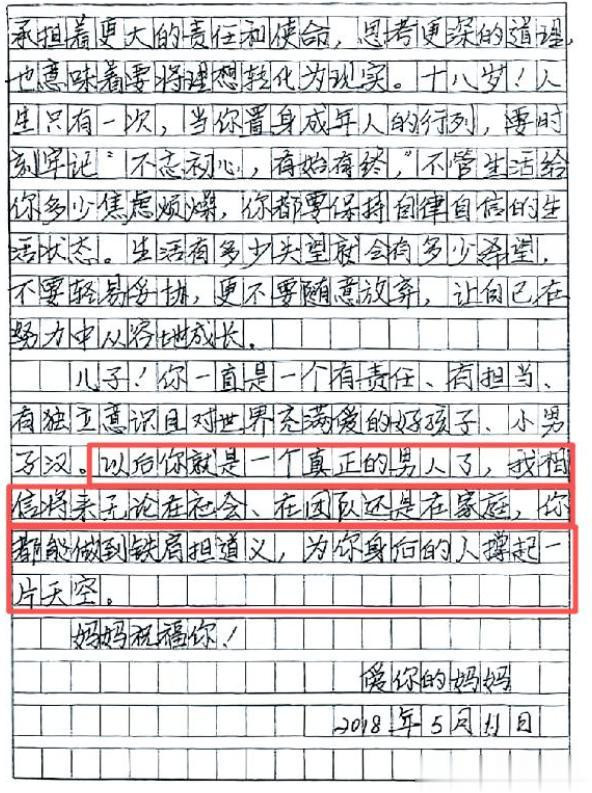 承担着更大的责任和使命，思考更深的道理，
也意味着要将理想转化为现实。十八岁！人
生只有一次，当你置身成年人的行列，要时
刻牢记“不忘初心，有始有终，”不管生活给
你多少焦虑烦燥，你都要保持自律自信的生
活状态。生活有多少失望就会有多少希望，
不要轻易妥协，更不要随意放弃，让自己在
努力中从容地成长。
儿子！你一直是一个有责任、有担当、
有独立意识且对世界充满爱的好孩子、小男
子汉。以后你就是一个真正的男人了，我相
信将来无论在社会、在团队还是在家庭，你
都能做到铁肩担道义，为你身后的人撑起一
片天空。
妈妈祝福你！
爱你的妈妈
2018年5月11日